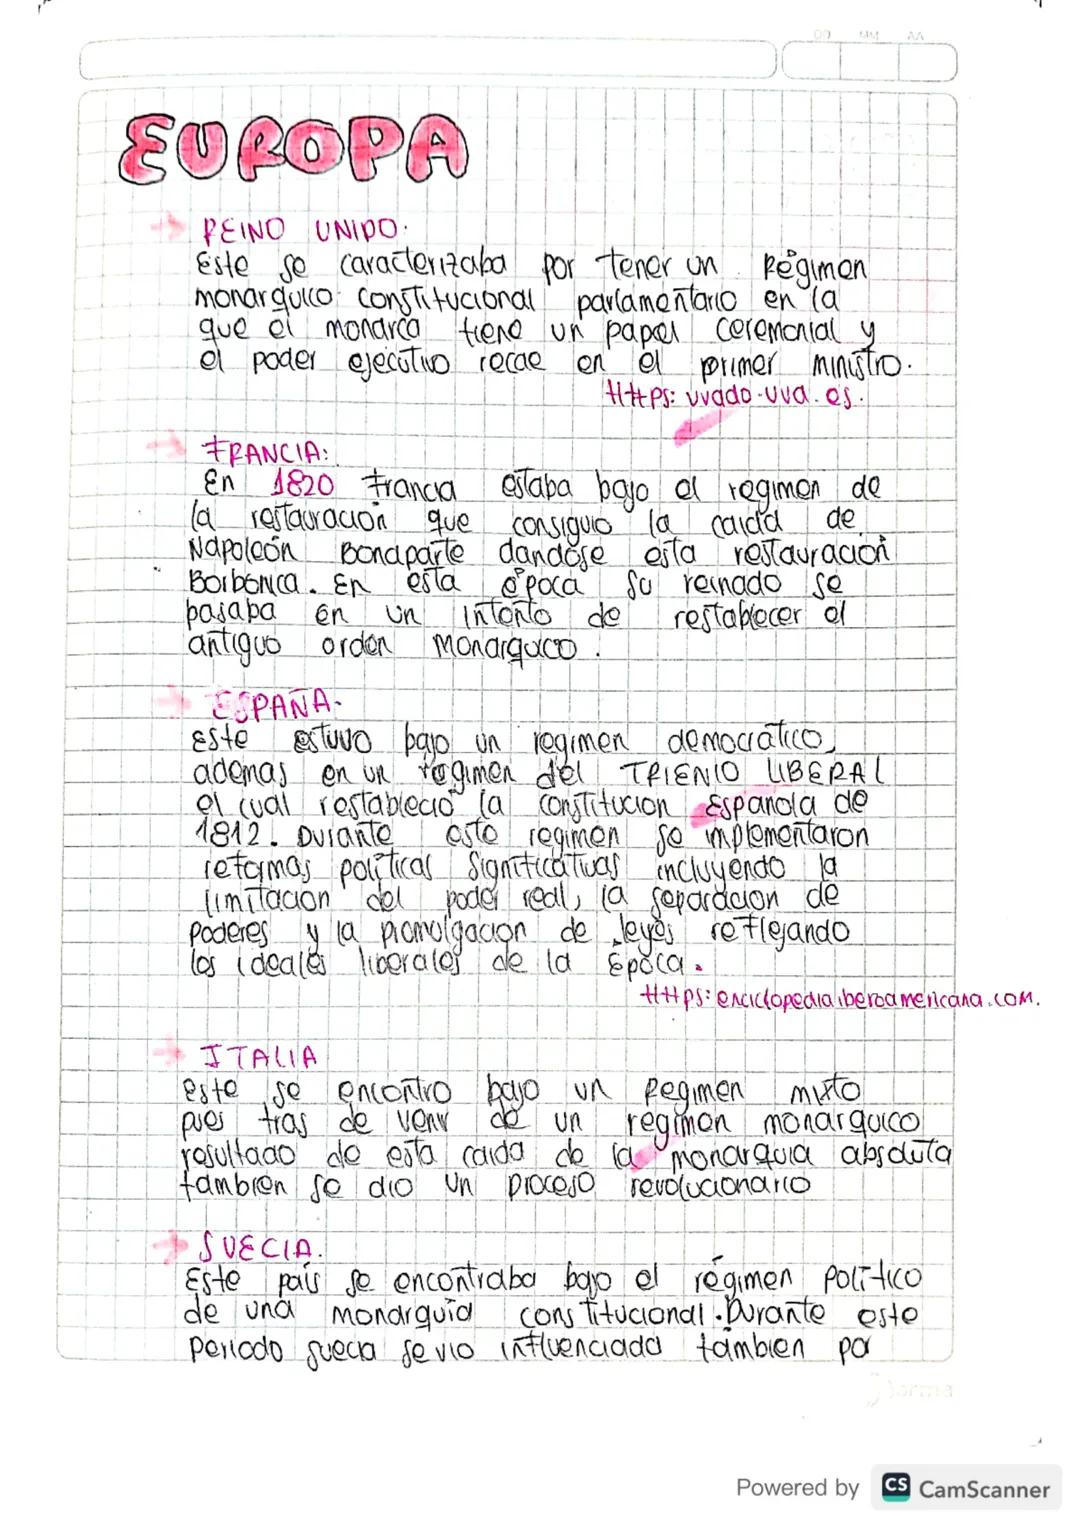 DD MM AA
EUROPA
→ REINO UNIDO.
Este se caracterizaba por tener un Régimen
monarquico constitucional parlamentario en la
que el monarca tiene un papel ceremonial y
el poder ejecutivo recae en el primer ministro.
Https: uvado.uva.es.
→ FRANCIA:
En 1820 francia estaba bajo el regimen de
la restauración que consiguio la caida de
Napoleón Bonaparte dandose esta restauración
Borbonica. En esta epoca su reinado se
basaba en un intento de restablecer el
antiguo orden monarquico.
→ ESPAÑA.
Este estuvo bajo un regimen democrático,
ademas en un regimen del TRIENIO LIBERAL
el cual restablecio la constitucion Española de
1812. Durante este regimen se implementaron
reformas políticas significativas incluyendo la
limitacion del poder real, la separacion de
poderes y la promulgacion de leyes reflejando
los ideales liberales de la Época.
Https: enciclopediaiberoamericana.com.
→ ITALIA
este se encontro bajo un Regimen mixto
pues tras de venir de un regimen monarquico
resultado de esta caida de la monarquia absoluta
tambien se dio un proceso revolucionario
→ SUECIA.
Este país se encontraba bajo el régimen político
de una monarquía constitucional. Durante este
periodo suecia se vio influenciada tambien por
norma
Powered by CS CamScanner